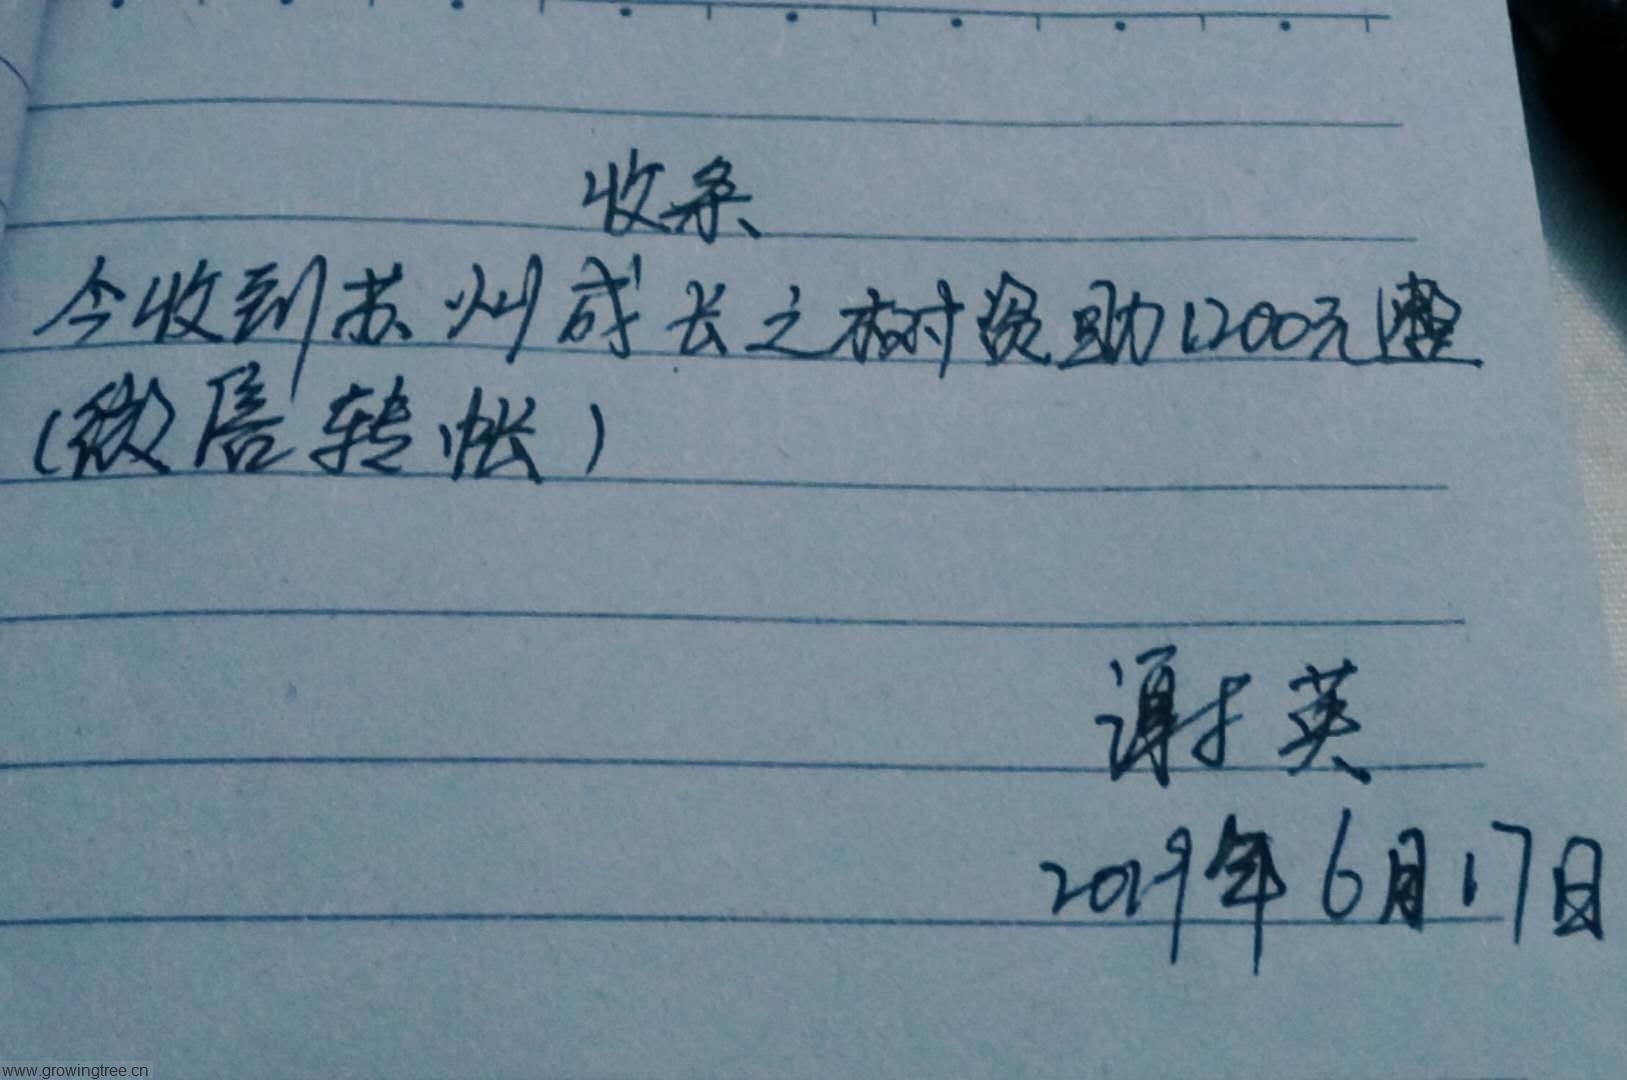 收条
今收到苏州成长之树资助1200元整
(微信转帐)
谢英
2019年6月17日
www.growingtree.cn